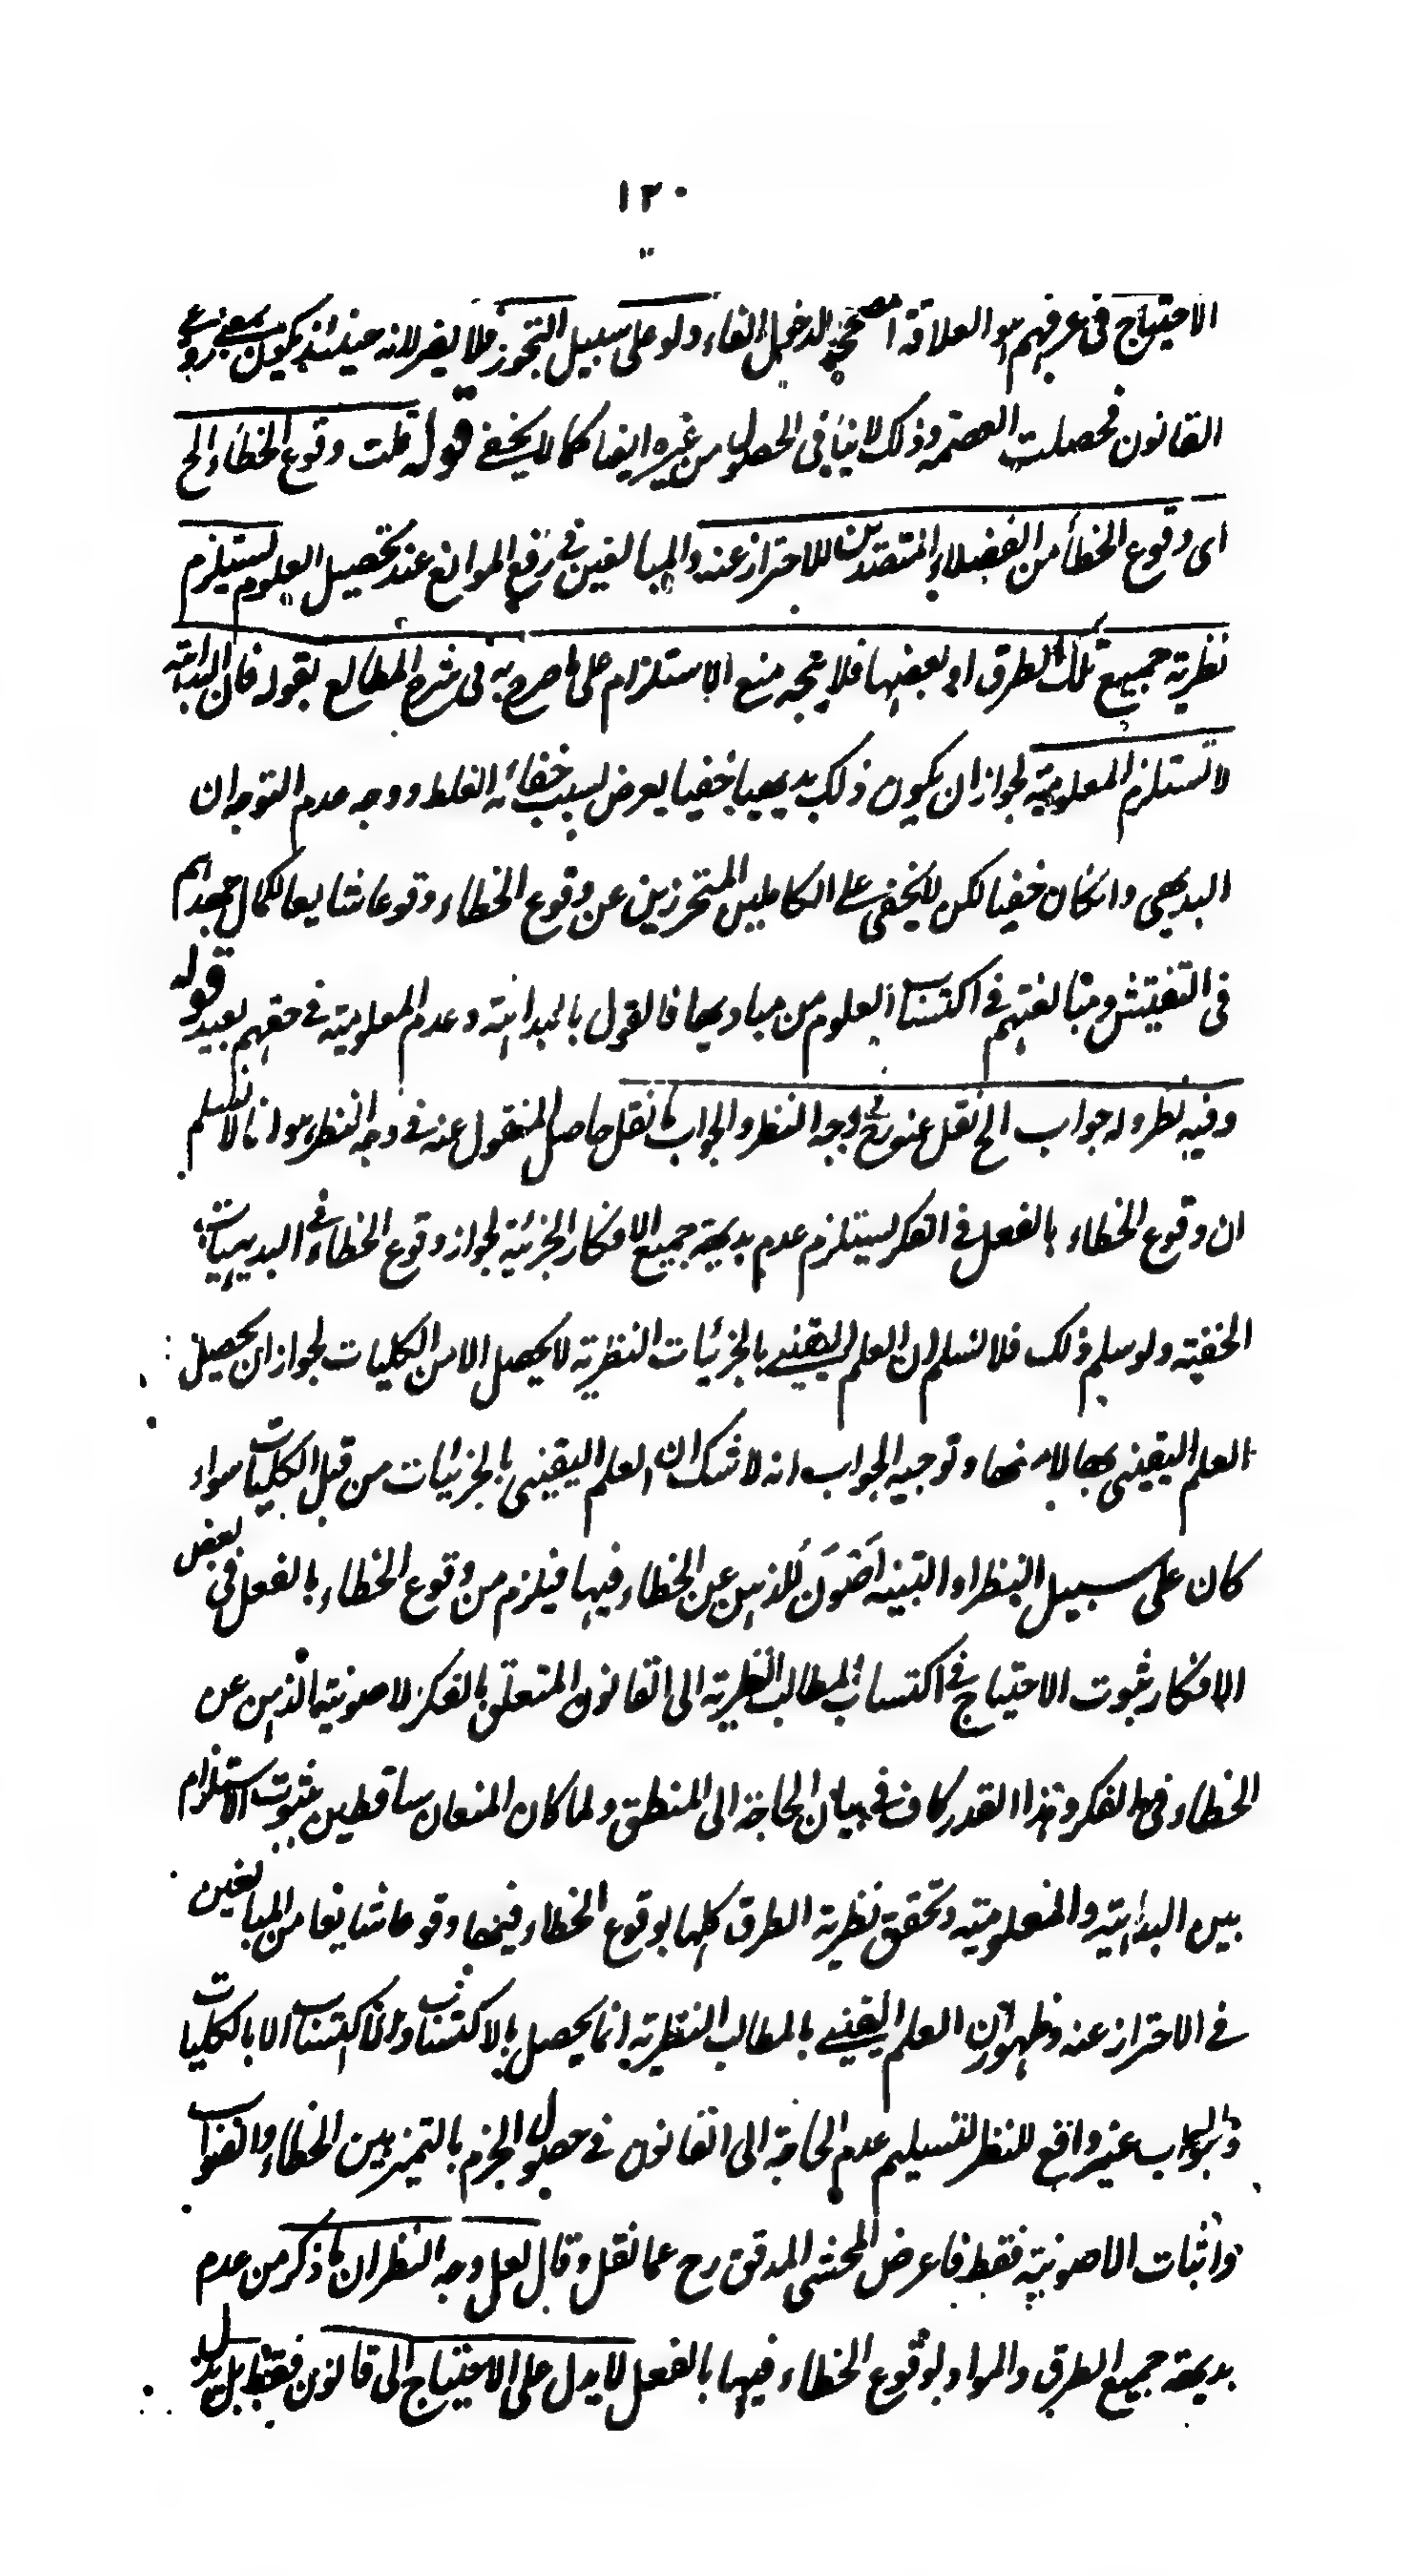 ١٢٠
الاحتياج فى عرفهم هو العلاقة المصححة لدخول الفاء ولو على سبيل التجوز فلا يضر لانه حينئذ يكون بمعنى روعى
القانون فحصلت العصمة وذلك لا ينافى الحصول من غيره ايضا كما لا يخفى قوله قلت وقوع الخطاء الخ
اى وقوع الخطأ من الفضلاء المتقصدين للاحتراز عنه والمبالغين فى رفع الموانع عند تحصيل العلوم يستلزم
نظرية جميع تلك الطرق او بعضها فلا يتجه منع الاستلزام على ما صرح به فى شرح المطالع بقوله فان البداهة
لا تستلزم المعلومية لجواز ان يكون ذلك بديهيا خفيا يعرض بسبب خفائه الغلط ووجه عدم التوجه ان
البديهى وان كان خفيا لكن لا يخفى على الكاملين المتحرزين عن وقوع الخطاء وقوعا شايعا لكمال جهدهم
فى التفتيش ومبالغتهم فى اكتساب العلوم من مباديها فالقول بالبداهة وعدم المعلومية فى حقهم بعيد قوله
وفيه نظر وله جواب الخ نقل عنه فى وجه النظر والجواب ما نقل حاصل المنقول عنه فى وجه النظر هو انا لا نسلم
ان وقوع الخطاء بالفعل فى الفكر يستلزم عدم بديهية جميع الافكار الجزئية لجواز وقوع الخطاء فى البديهيات
الخفية ولو سلم ذلك فلا نسلم ان العلم اليقينى بالجزئيات النظرية لا يحصل الا من الكليات لجواز ان يحصل
العلم اليقينى بها لا منها وتوجيه الجواب انه لا شك ان العلم اليقينى بالجزئيات من قبل الكليات سواء
كان على سبيل النظر او التنبيه اَصْوَنَ للذهن عن الخطاء فيها فيلزم من وقوع الخطاء بالفعل فى بعض
الافكار ثبوت الاحتياج فى اكتساب المطالب النظرية الى القانون المتعلق بالفكر لاصونية الذهن عن
الخطاء فى الفكر وهذا القدر كاف فى بيان الحاجة الى المنطق ولما كان المنعان ساقطين بثبوت الاستلزام
بين البداهية والمعلومية وتحقق نظرية الطرق كلها بوقوع الخطاء فيها وقوعا شايعا من المبالغين
فى الاحتراز عنه وظهور ان العلم اليقينى بالمطالب النظرية انما يحصل بالاكتساب ولا اكتساب الا بالكليات
والجواب غير دافع للنظر لتسليم عدم الحاجة الى القانون فى حصول الجزم بالتميز بين الخطاء والصواب
واثبات الاصونية فقط فاعرض المحشى المدقق رح عما نقل وقال لعل وجه النظر ان ما ذكر من عدم
بديهية جميع الطرق والمواد لوقوع الخطاء فيها بالفعل لا يدل على الاحتياج الى قانون فقط بل يدل